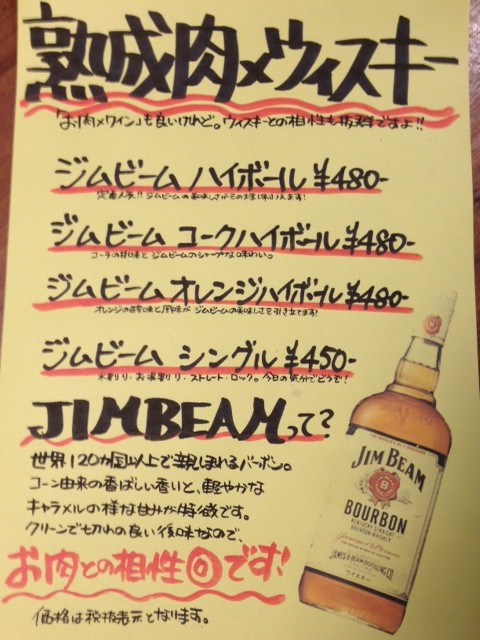 熟成肉×ウィスキー
「お肉×ワイン」も良いけれど。ウィスキーとの相性も抜群ですよ!!
ジムビーム ハイボール ¥480-
定番人気!! ジムビームの美味しさがそのまま味わえます!
ジムビーム コークハイボール ¥480-
コーラの甘味と ジムビームのシャープな味わい。
ジムビーム オレンジハイボール ¥480-
オレンジの酸味と風味が ジムビームの美味しさを引き立てます!
ジムビーム シングル ¥450-
水割り・お湯割り・ストレート・ロック。今日の気分でどうぞ!
JIMBEAMって?
世界120カ国以上で親しまれるバーボン。
コーン由来の香ばしい香いと、軽やかな
キャラメルの様な甘みが特徴です。
クリーンでキレの良い後味なので、
お肉との相性◎です!
価格は税抜表示となります。
JIM BEAM
BOURBON
KENTUCKY STRAIGHT
BOURBON WHISKEY
JAMES B. BEAM DISTILLING CO.
ウイスキー